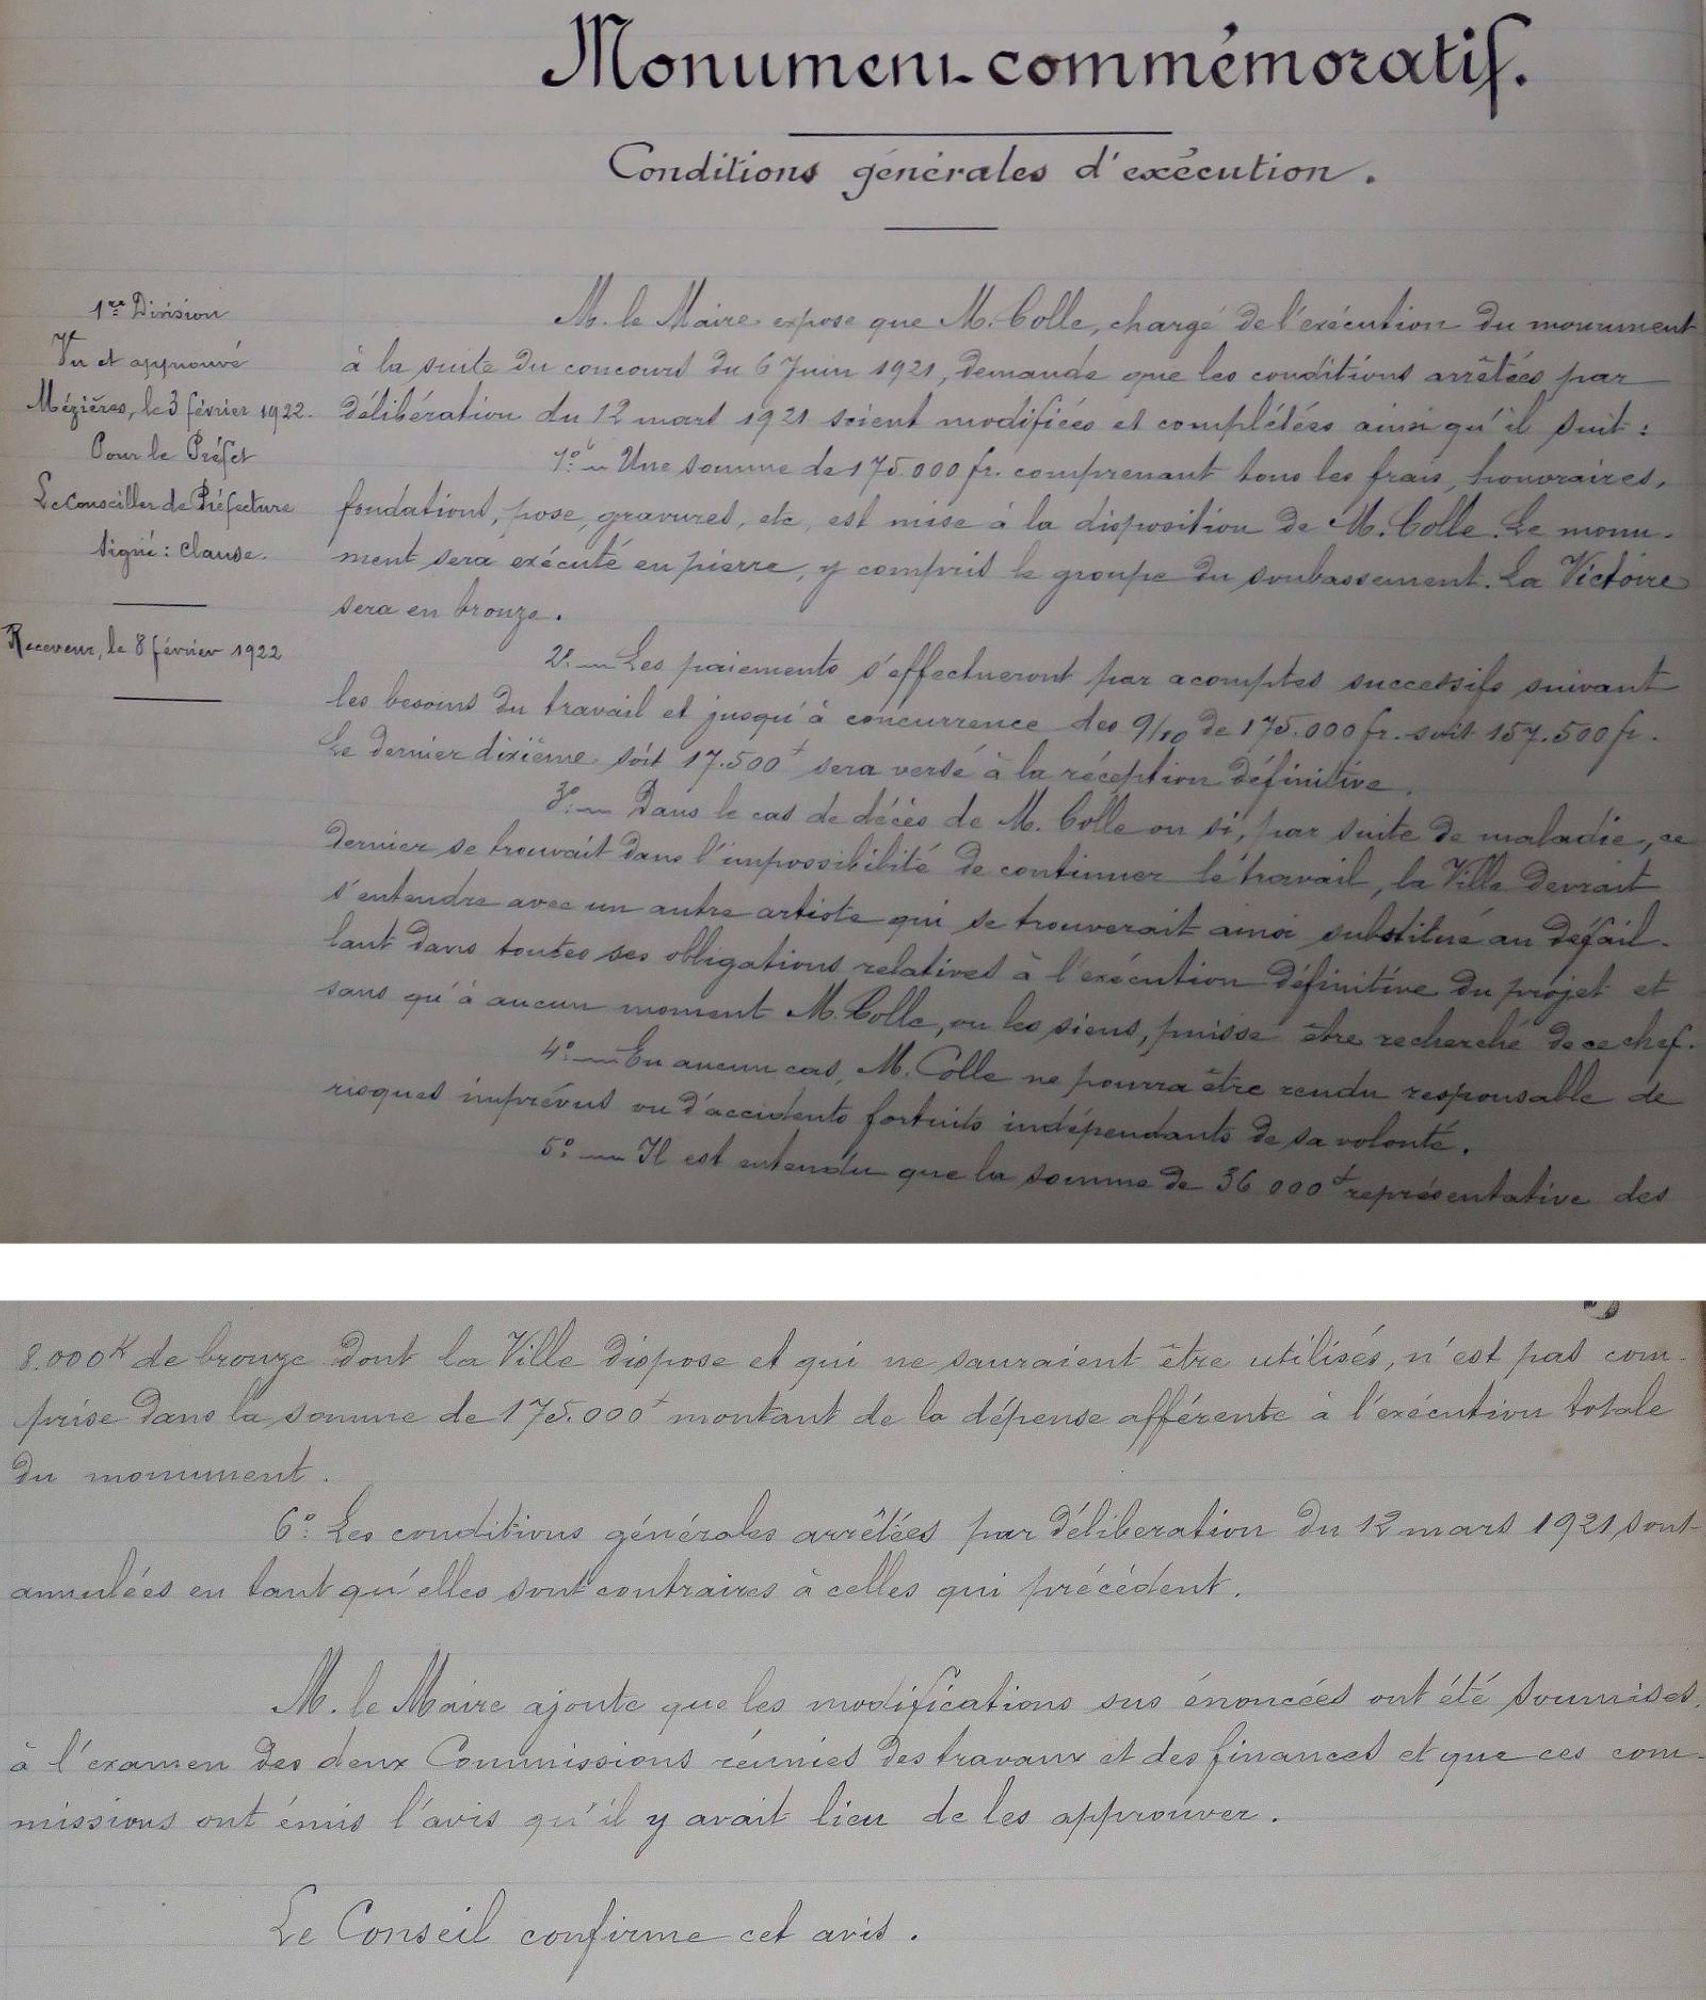 Monument commémoratif.
Conditions générales d'exécution.
1re Division
Vu et approuvé
Mézières, le 3 février 1922.
Pour le Préfet
Le Conseiller de Préfecture
Signé : Clause.
Receveur, le 8 février 1922
M. le Maire expose que M. Colle, chargé de l'exécution du monument
à la suite du concours du 6 Juin 1921, demande que les conditions arrêtées par
délibération du 12 mars 1921 soient modifiées et complétées ainsi qu'il suit :
1° — Une somme de 175.000 fr. comprenant tous les frais, honoraires,
fondations, pose, gravures, etc, est mise à la disposition de M. Colle. Le monu-
ment sera exécuté en pierre, y compris le groupe du soubassement. La Victoire
sera en bronze.
2° — Les paiements s'effectueront par acomptes successifs suivant
les besoins du travail et jusqu'à concurrence des 9/10 de 175.000 fr. soit 157.500 fr.
Le dernier dixième soit 17.500 f sera versé à la réception définitive.
3° — Dans le cas de décès de M. Colle ou si, par suite de maladie, ce
dernier se trouvait dans l'impossibilité de continuer le travail, la Ville devrait
s'entendre avec un autre artiste qui se trouverait ainsi substitué au défail-
lant dans toutes ses obligations relatives à l'exécution définitive du projet et
sans qu'à aucun moment M. Colle, ou les siens, puisse être recherché de ce chef.
4° — En aucun cas, M. Colle ne pourra être rendu responsable de
risques imprévus ou d'accidents fortuits indépendants de sa volonté.
5° — Il est entendu que la somme de 36 000 f représentative des
8.000 K de bronze dont la Ville dispose et qui ne sauraient être utilisés, n'est pas com-
prise dans la somme de 175.000 f montant de la dépense afférente à l'exécution totale
du monument.
6° Les conditions générales arrêtées par délibération du 12 mars 1921 sont
annulées en tant qu'elles sont contraires à celles qui précédent.
M. le Maire ajoute que les modifications sus énoncées ont été soumises
à l'examen des deux Commissions réunies des travaux et des finances et que ces com-
missions ont émis l'avis qu'il y avait lieu de les approuver.
Le Conseil confirme cet avis.